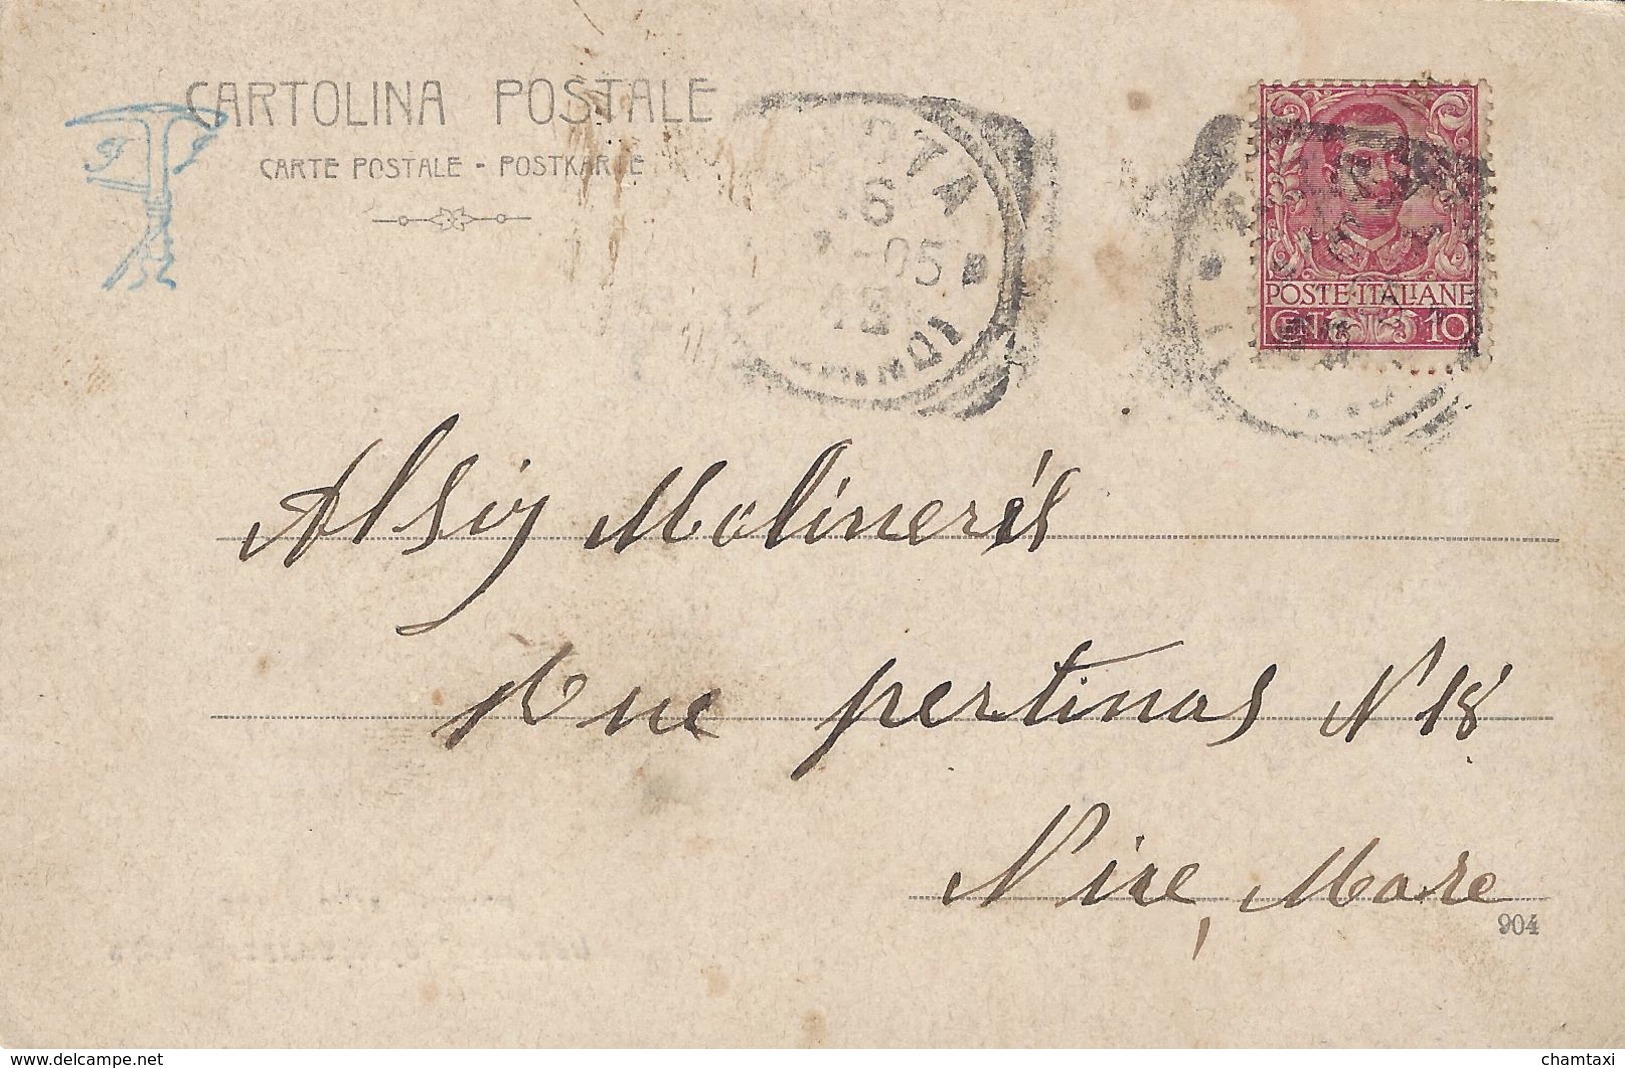 CARTOLINA POSTALE
CARTE POSTALE - POSTKARTE
6
-05
POSTE ITALIANE
CENT. 10
Molineris
Rue pertinas N 18
Nice, Mare
904
www.delcampe.net
chamtaxi